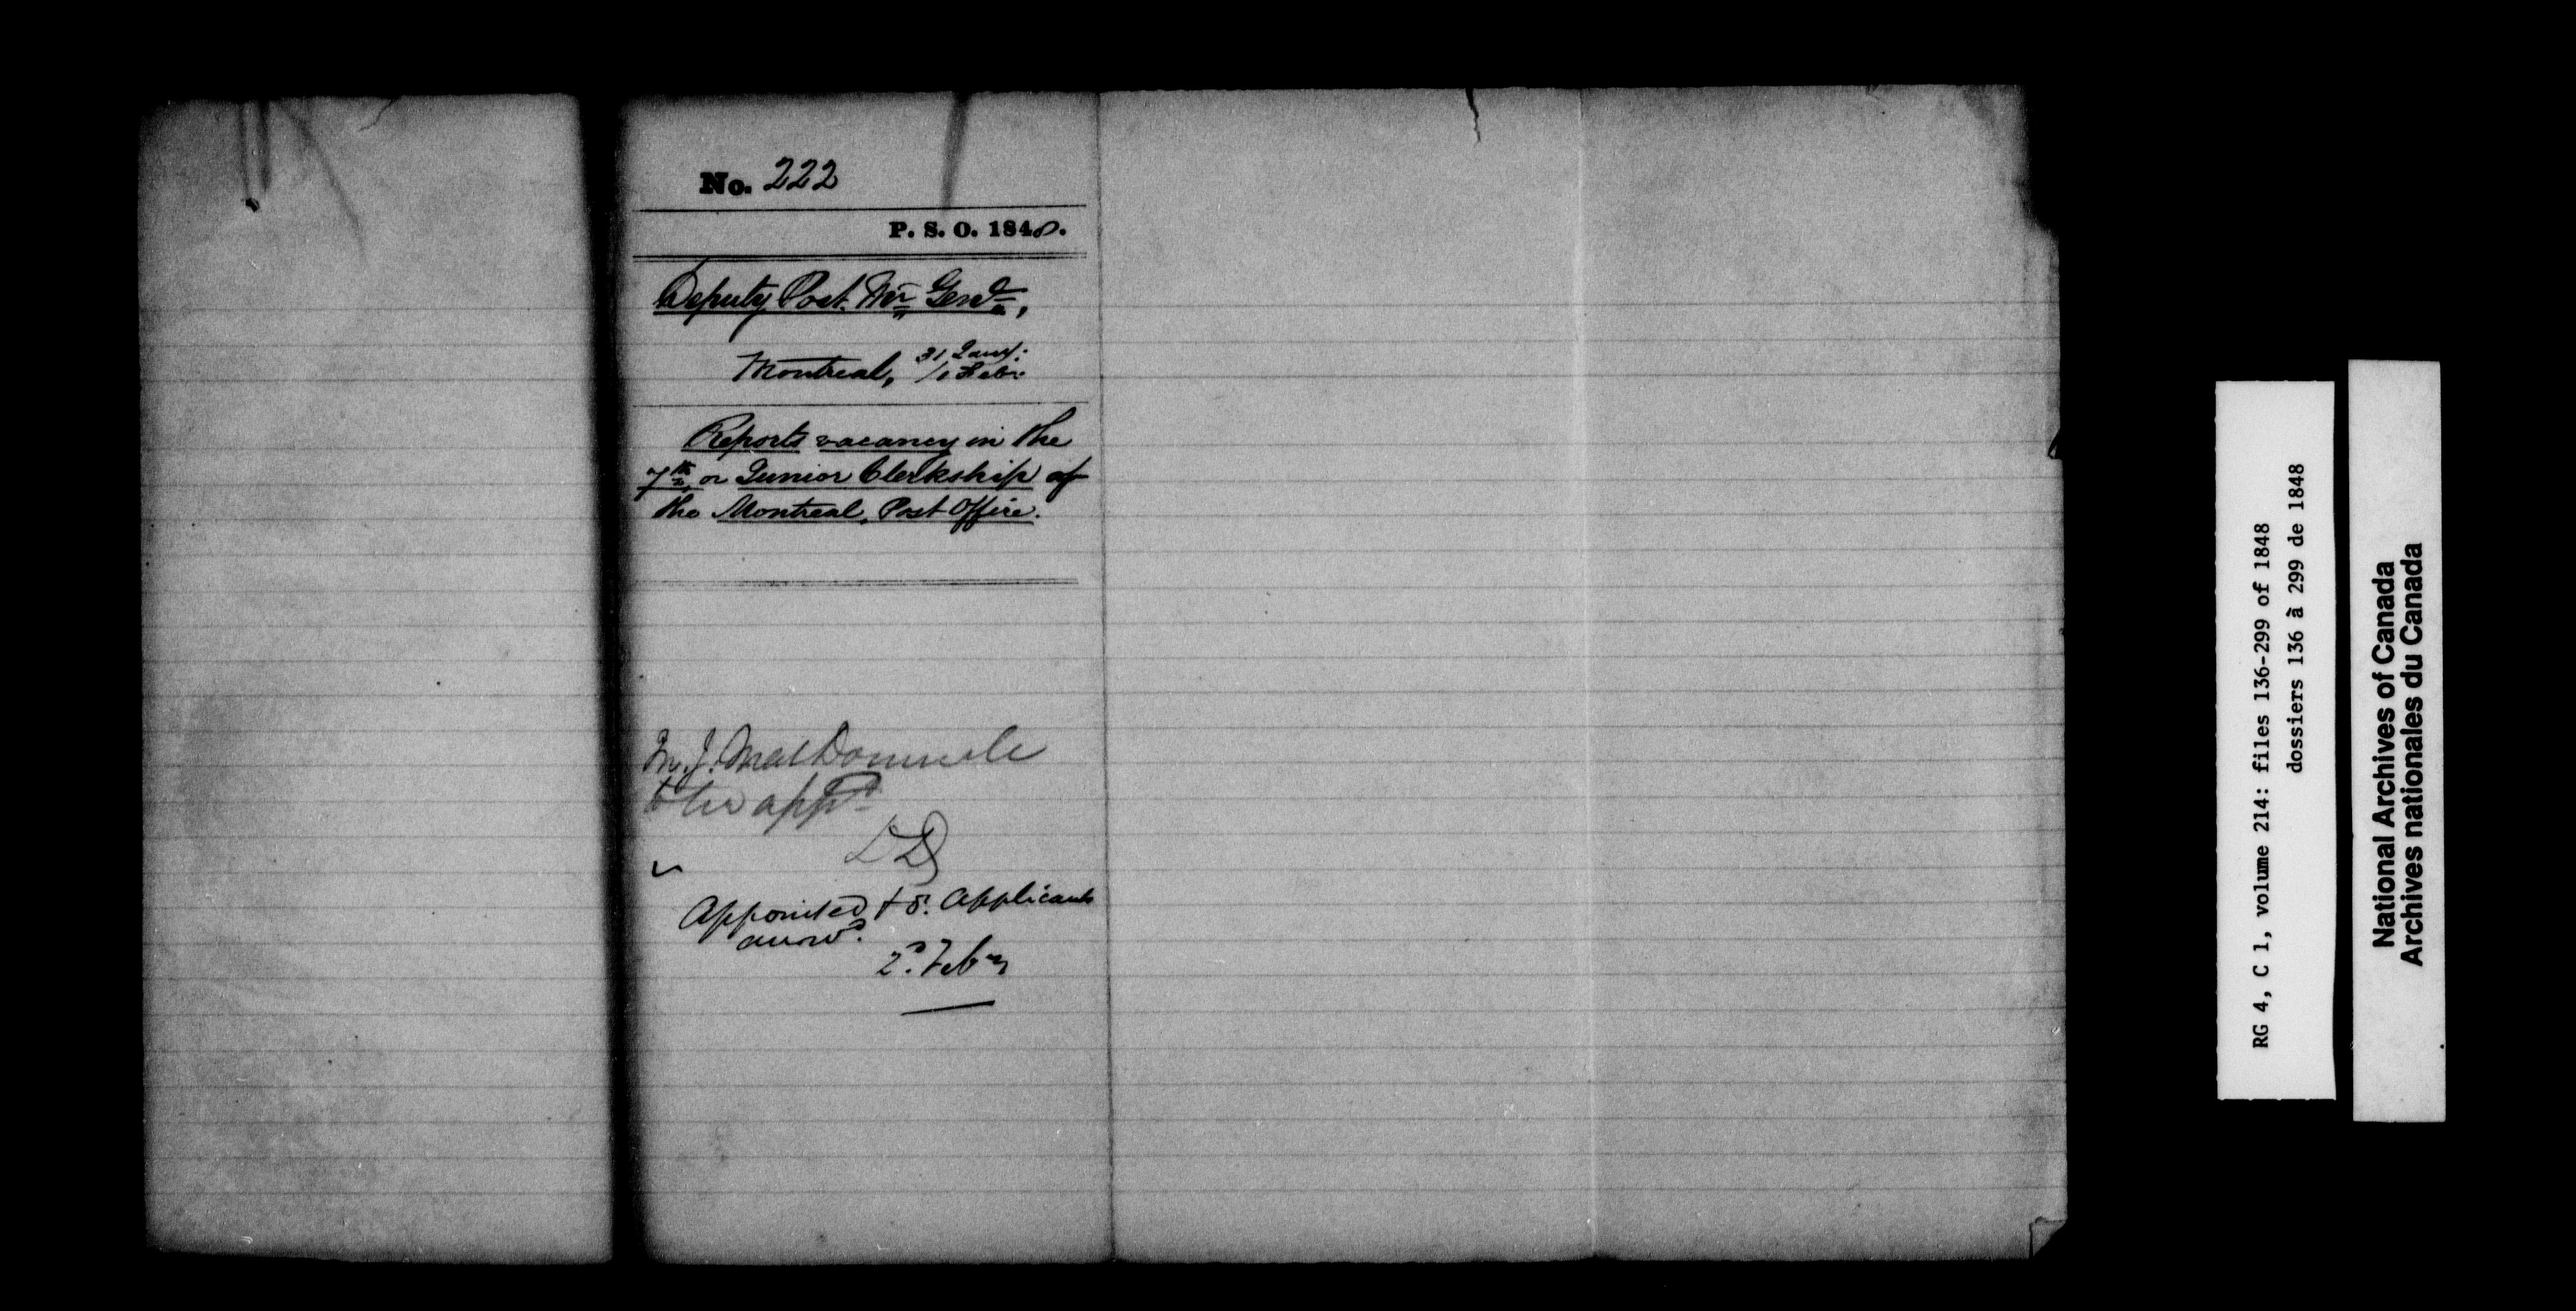 No. 222
P. S. O. 1848.
Deputy Post. Mr Genl,
Montreal, 31 Jany:
/1 Feby
Reports vacancy in the
7th or Junior Clerkship of
the Montreal, Post Office.
M. J. MacDonnell
to be appd
DD
Appointed & Applicants
answd.
2d. Feby
RG 4, C 1, volume 214: files 136-299 of 1848
dossiers 136 à 299 de 1848
National Archives of Canada
Archives nationales du Canada